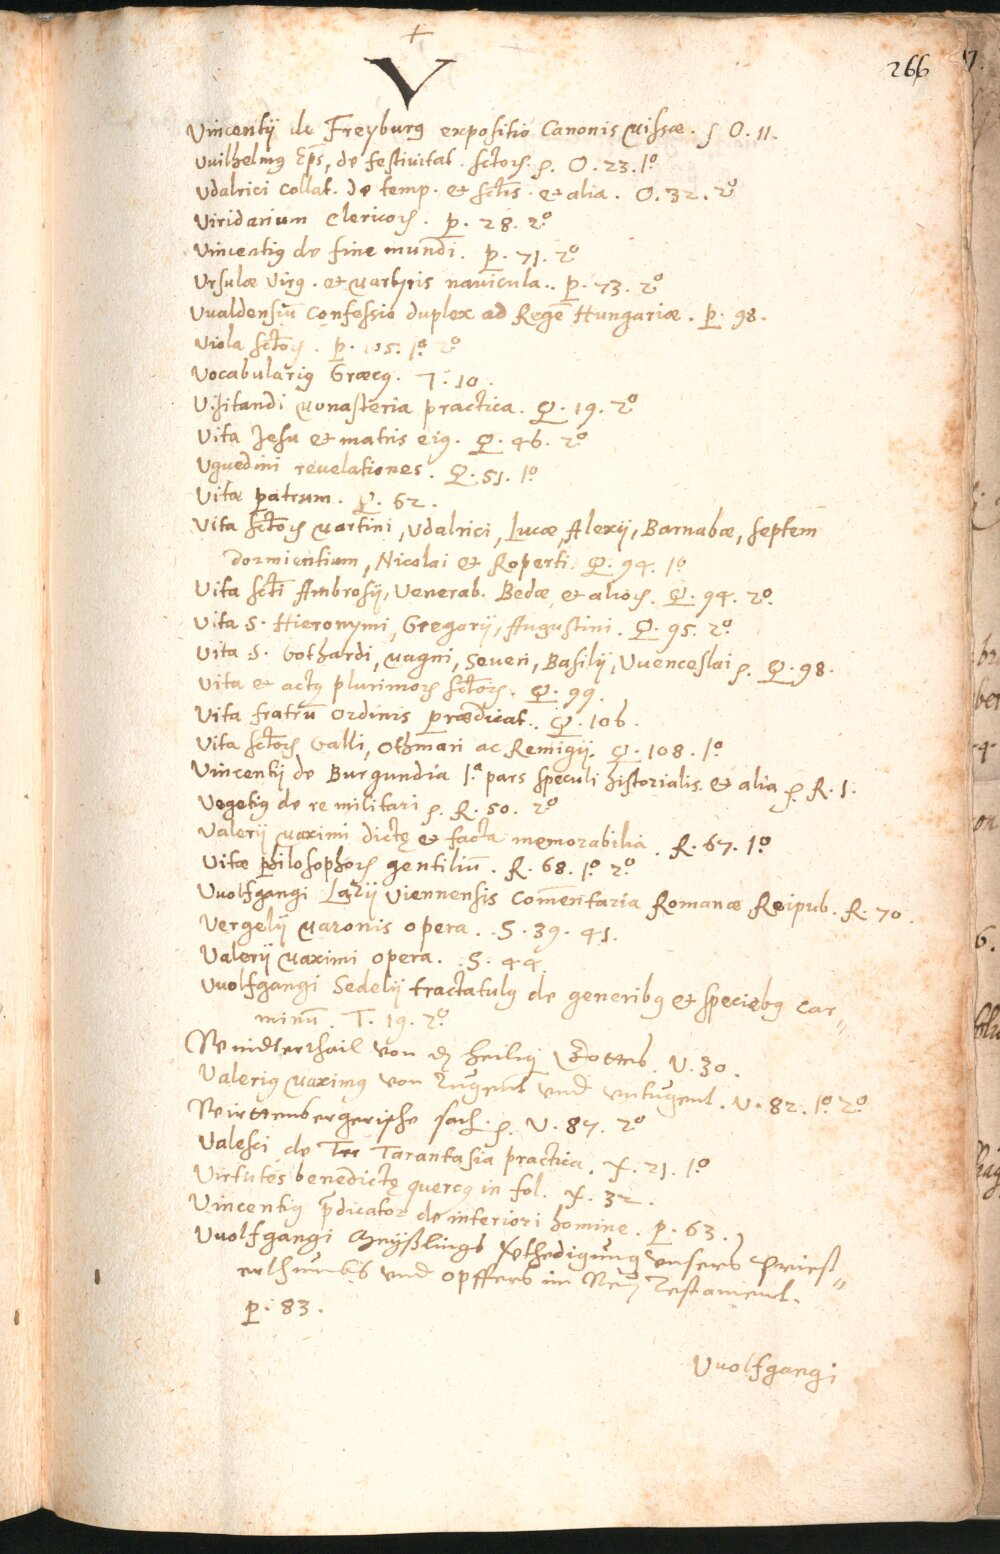 +
V
266
Vincentij de Freyburg expositio Canonis Missæ. ʃ O. 11.
Vuilhelmꝰ Ep̄s, de festiuitat. sctoꝝ. p. O. 23. 1º
Vdalrici collat. de temp. et sctis. et alia. O. 32. 2º
Viridarium Clericoꝝ. p. 28. 2º
Vincentiꝰ de fine mundi. p. 71. 2º
Vrsulæ Virg. et Martyris nauicula.. p. 73. 2º
Vualdensiū Confessio duplex ad Regē Hungariæ. p. 98.
Viola sctoꝝ. p. 105. 1º 2º
Vocabulariꝰ Græcꝰ. 7. 10.
Visitandi Monasteria practica. Q. 19. 2º
Vita Jesu et matris eiꝰ. Q. 46. 2º
Vguedini reuelationes. Q. 51. 1º
Vitæ patrum. Q. 62.
Vita sctoꝝ Martini, Vdalrici, Lucæ, Alexij, Barnabæ, septem
dormientium, Nicolai et Roperti. Q. 94. 1º
Vita scti Ambrosij, Venerab. Bedæ, et alioꝝ. Q. 94. 2º.
Vita S. Hieronymi, Gregorij, Augustini. Q. 95. 2º.
Vita .S. Gothardi, Magni, Seueri, Basilij, Vuenceslai p. Q. 98.
Vita et actꝰ plurimoꝝ sctoꝝ. Q. 99.
Vita fratrū Ordinis prædicat.. Q. 106.
Vita sctoꝝ Galli, Othmari ac Remigij. Q. 108. 1º
Vincentij de Burgundia 1.ª pars speculi historialis et alia p. R. 1.
Vegetiꝰ de re militari p. R. 50. 2º
Valerij Maximi dictę et facta memorabilia. R. 67. 1º
Vitæ philosophoꝝ gentiliū. R. 68. 1º 2º
Vuolfgangi Lazij Viennensis Com̄entaria Romanæ Reipub. R. 70.
Vergelij Maronis opera. .S. 39. 41.
Valerij Maximi opera. .S. 44.
Vuolfgangi Sedelij tractatulꝰ de generibꝰ et speciebꝰ car-
minū. T. 19. 2º
Valeriꝰ Maximꝰ von Tugent vnd vntugent. V. 82. 1º 2º
Wirttembergerische sach. p. V. 87. 2º
Valesci de Tarantasia practica. X. 21. 1º
Virtutes benedictę quercꝰ in fol. X. 32.
Vincentiꝰ p̄dicator de interiori homine. p. 63.
Vuolfgangi vnsers Priest-
erthumbs vnd opffers im New Testament.
p. 83.
Vuolfgangi